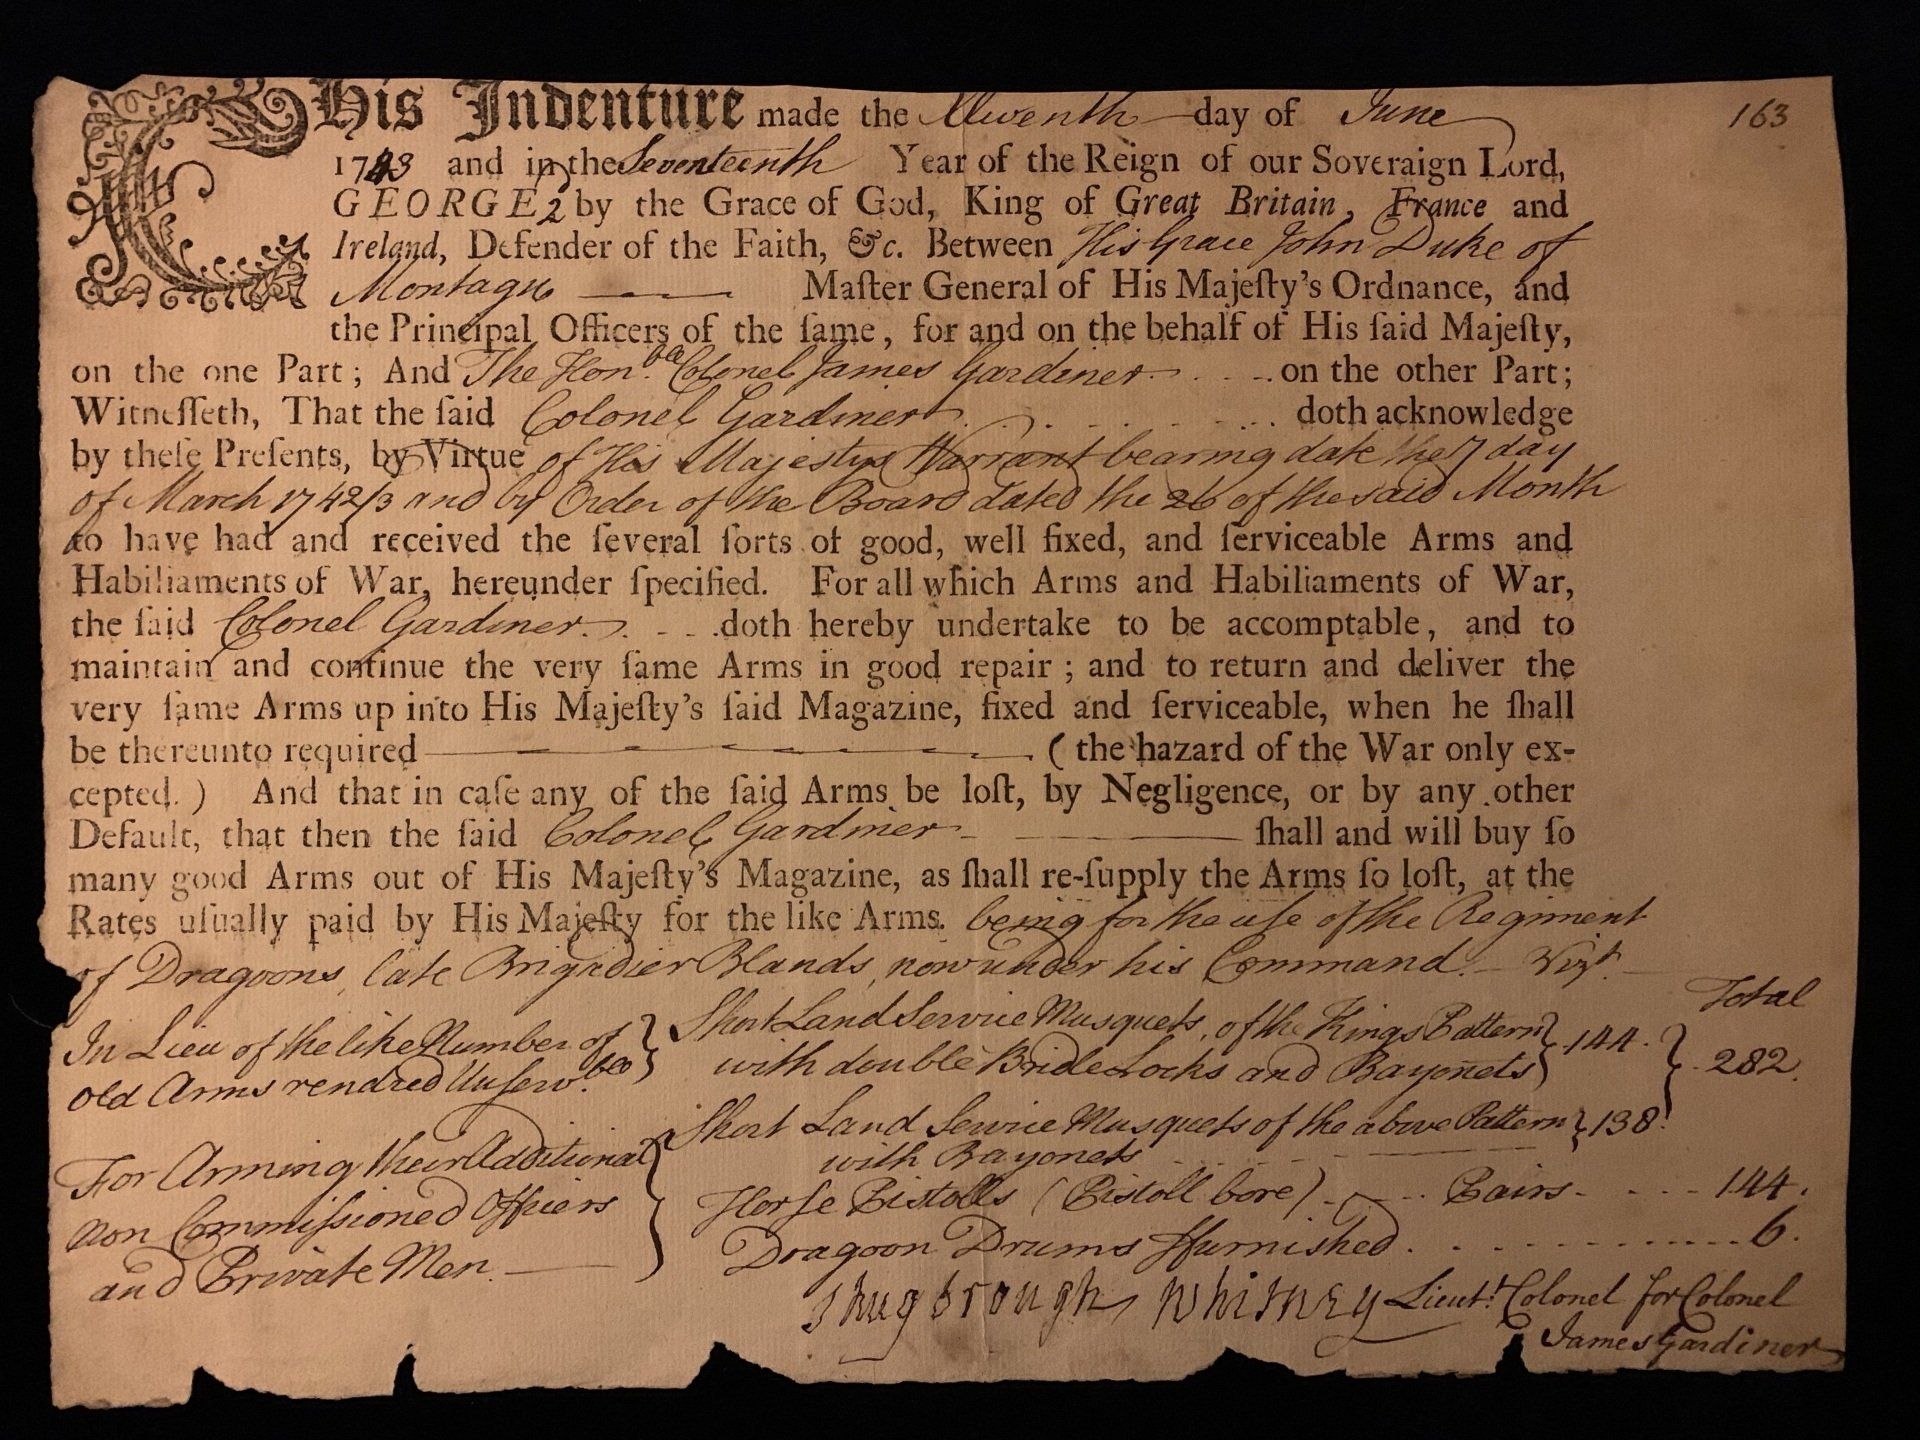 This Indenture made the Eleventh day of June
163
1743 and in the Seventeenth Year of the Reign of our Soveraign Lord,
GEORGE 2 by the Grace of God, King of Great Britain, France and
Ireland, Defender of the Faith, &c. Between His Grace John Duke of
Montagu Maſter General of His Majeſty's Ordnance, and
the Principal Officers of the ſame, for and on the behalf of His ſaid Majeſty,
on the one Part; And The Hon.ble Colonel James Gardiner on the other Part;
Witneſſeth, That the ſaid Colonel Gardiner doth acknowledge
by theſe Preſents, by Virtue of His Majestys Warrant bearing date the 7 day
of March 1742/3 and by Order of the Board dated the 26 of the said Month
to have had and received the ſeveral ſorts of good, well fixed, and ſerviceable Arms and
Habiliaments of War, hereunder ſpecified. For all which Arms and Habiliaments of War,
the ſaid Colonel Gardiner doth hereby undertake to be accomptable, and to
maintain and continue the very ſame Arms in good repair; and to return and deliver the
very ſame Arms up into His Majeſty's ſaid Magazine, fixed and ſerviceable, when he ſhall
be thereunto required (the hazard of the War only ex-
cepted.) And that in caſe any of the ſaid Arms be loſt, by Negligence, or by any other
Default, that then the ſaid Colonel Gardiner ſhall and will buy ſo
many good Arms out of His Majeſty's Magazine, as ſhall re-ſupply the Arms ſo loſt, at the
Rates uſually paid by His Majeſty for the like Arms. being for the use of the Regiment
of Dragoons, late Brigadier Blands, now under his Command. Vizt.
Total
In Lieu of the like Number of
old Arms rendred Unserv.ble
Short Land Service Musquets, of the Kings Pattern
with double Bridle Locks and Bayonets } 144.
282.
For Arming their Additional
non Commiſsioned Officers
and Private Men.
Short Land Service Musquets of the above Pattern } 138.
with Bayonets
Horſe Pistolls (Pistoll bore) Pairs 144.
Dragoon Drums ffurnished 6.
Shugbrough Whitney Lieut.t Colonel for Colonel
James Gardiner